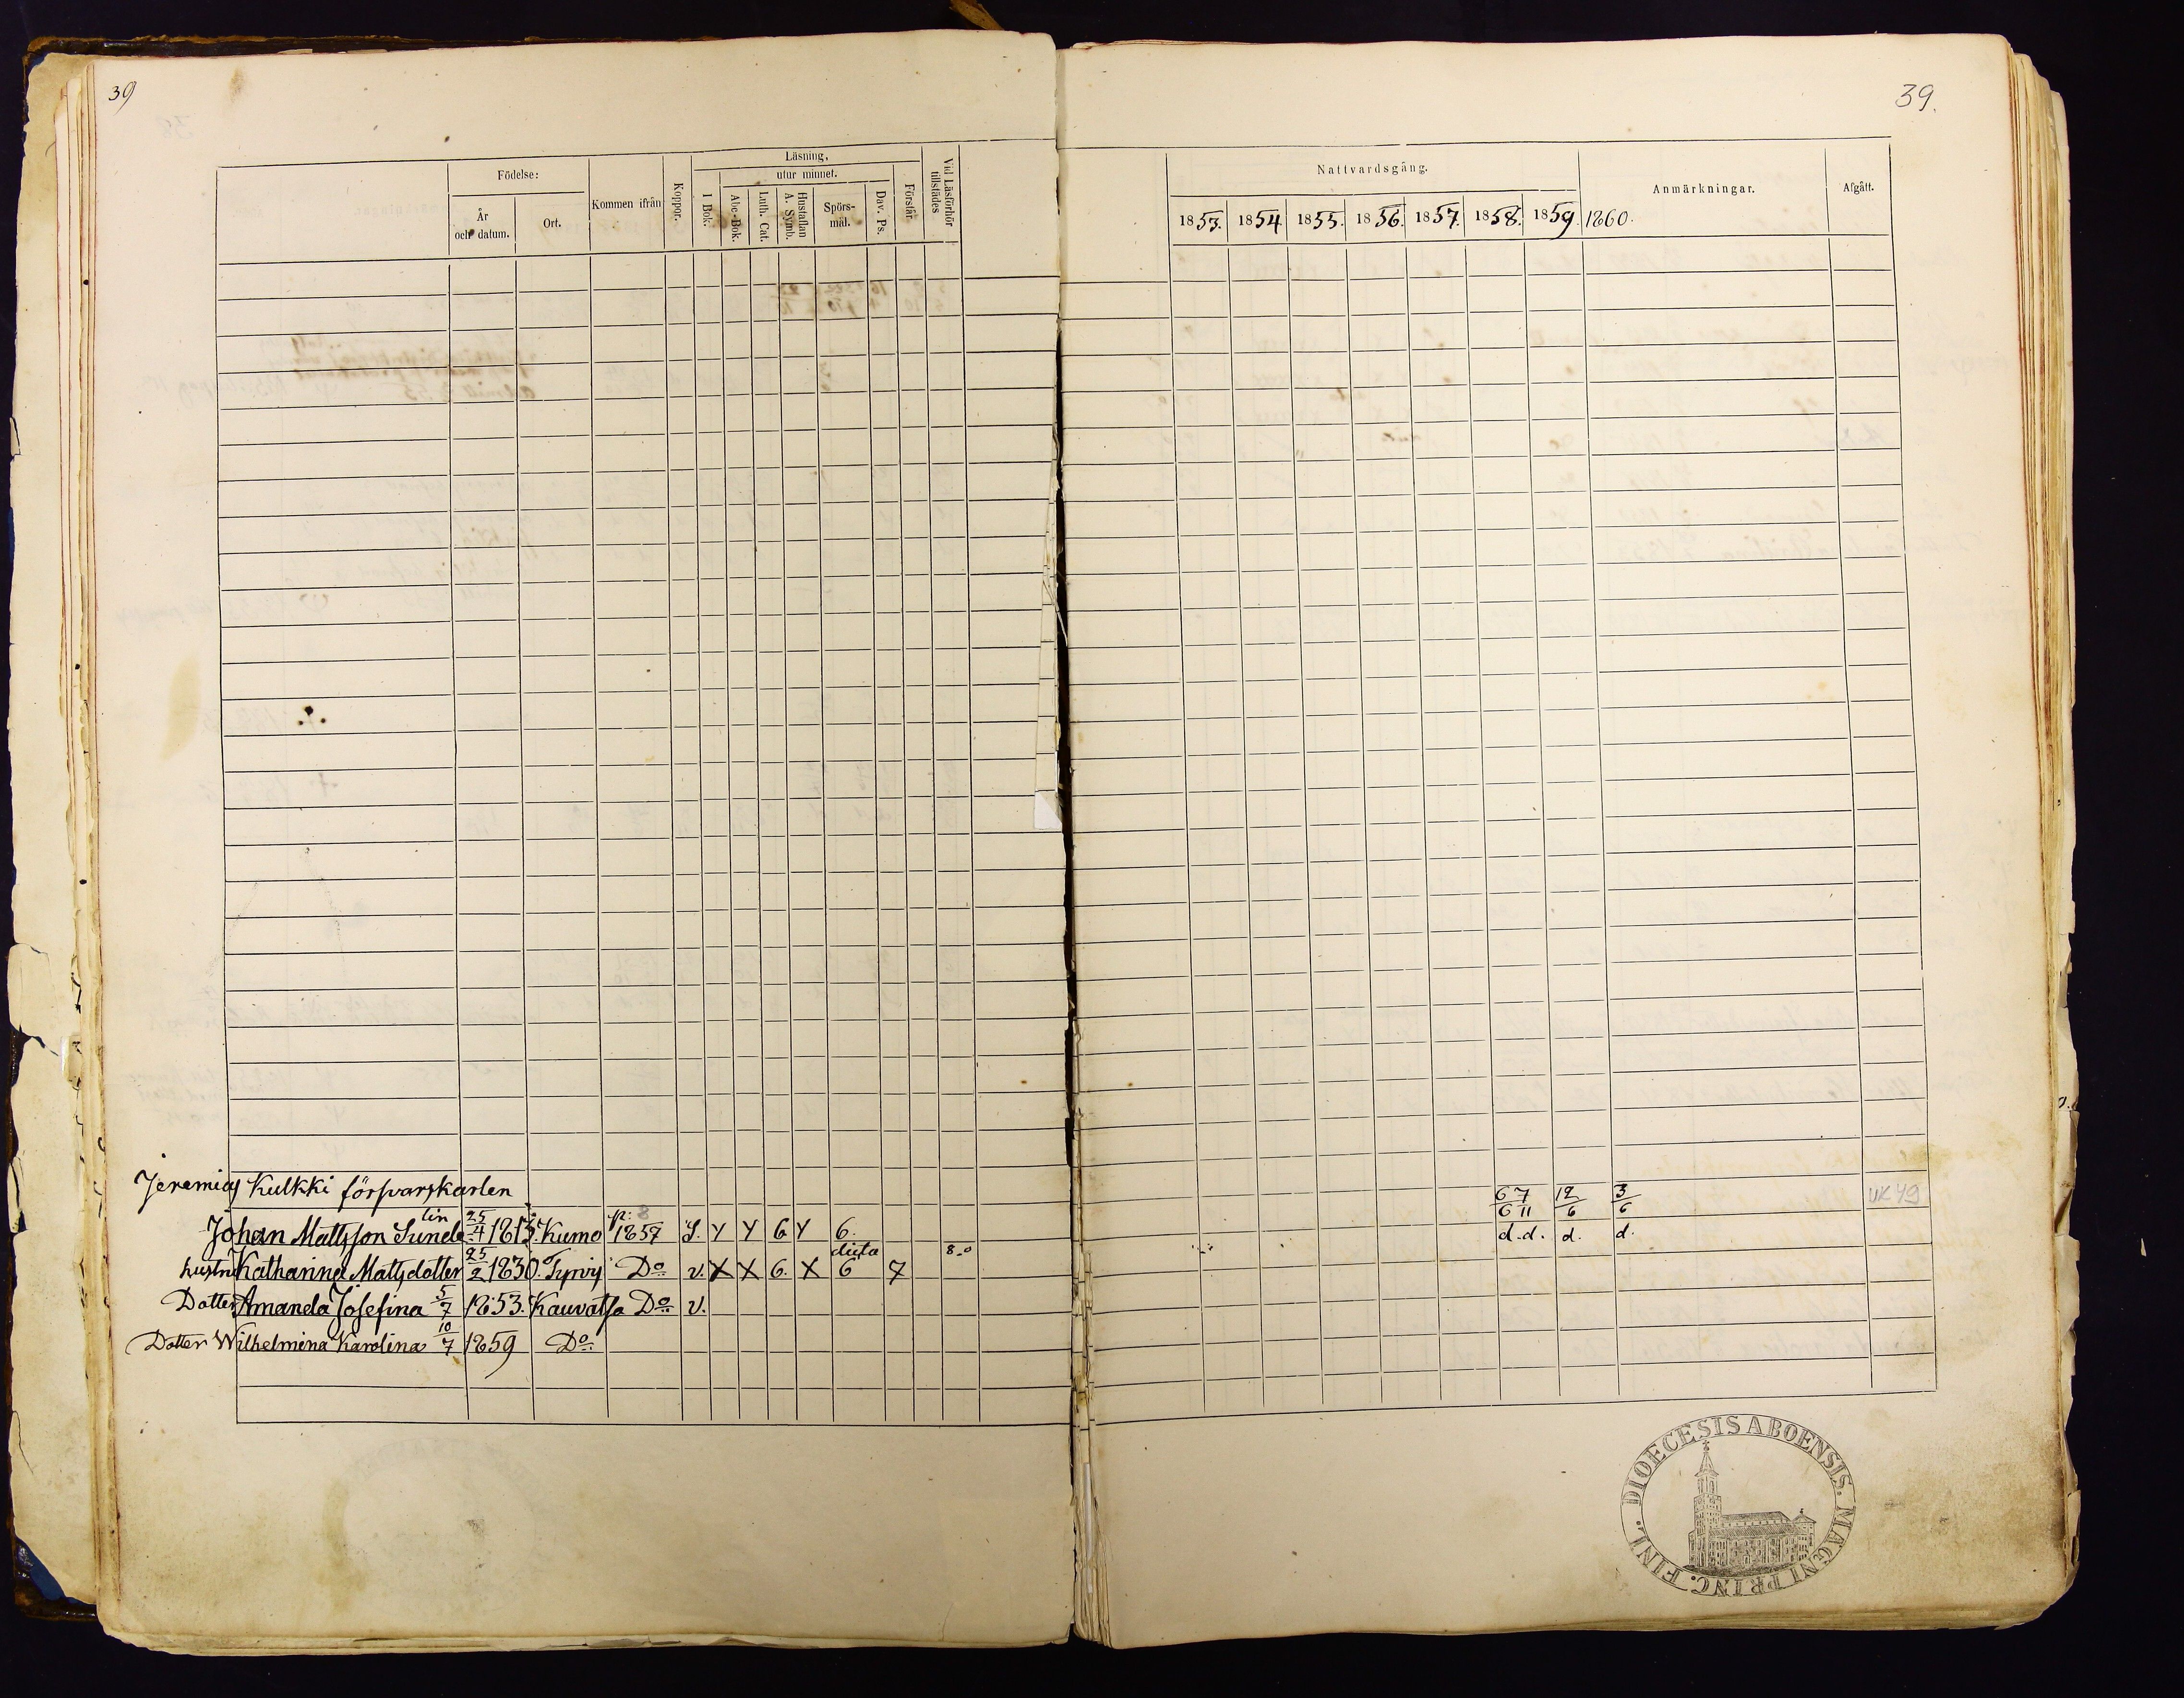 39
39.
Födelse:
År och datum.
Ort.
Kommen ifrån
Koppor.
Läsning.
I Bok.
utur minnet.
Abc-Bok.
Luth. Cat.
Hustaflan A. Symb.
Spörs-mål.
Dav. Ps.
Förstår
Vid Läsförhör tillstädes
Nattvardsgång.
1853. 1854. 1855. 1856. 1857. 1858. 1859. 1860.
Anmärkningar.
Afgått.
Jeremias Kulkki försvarskarlen
Johan Mattsson Sundelin 25/4 1813. Kumo 1857 S. Y Y 6 Y 6. 6/6 7/11 12/6 3/6 UK 49
hustru Katharina Mattsdotter 25/2 1830. Tyrvis Do v. X X 6. X 6 7 8-0 d.d. d. d.
Dotter Amanda Josefina 5/7 1853. Kauvatsa Do v.
Dotter Wilhelmina Karolina 10/7 1859 Do
DIOECESIS ABOENSIS. MAGNI PRINC. FINL.